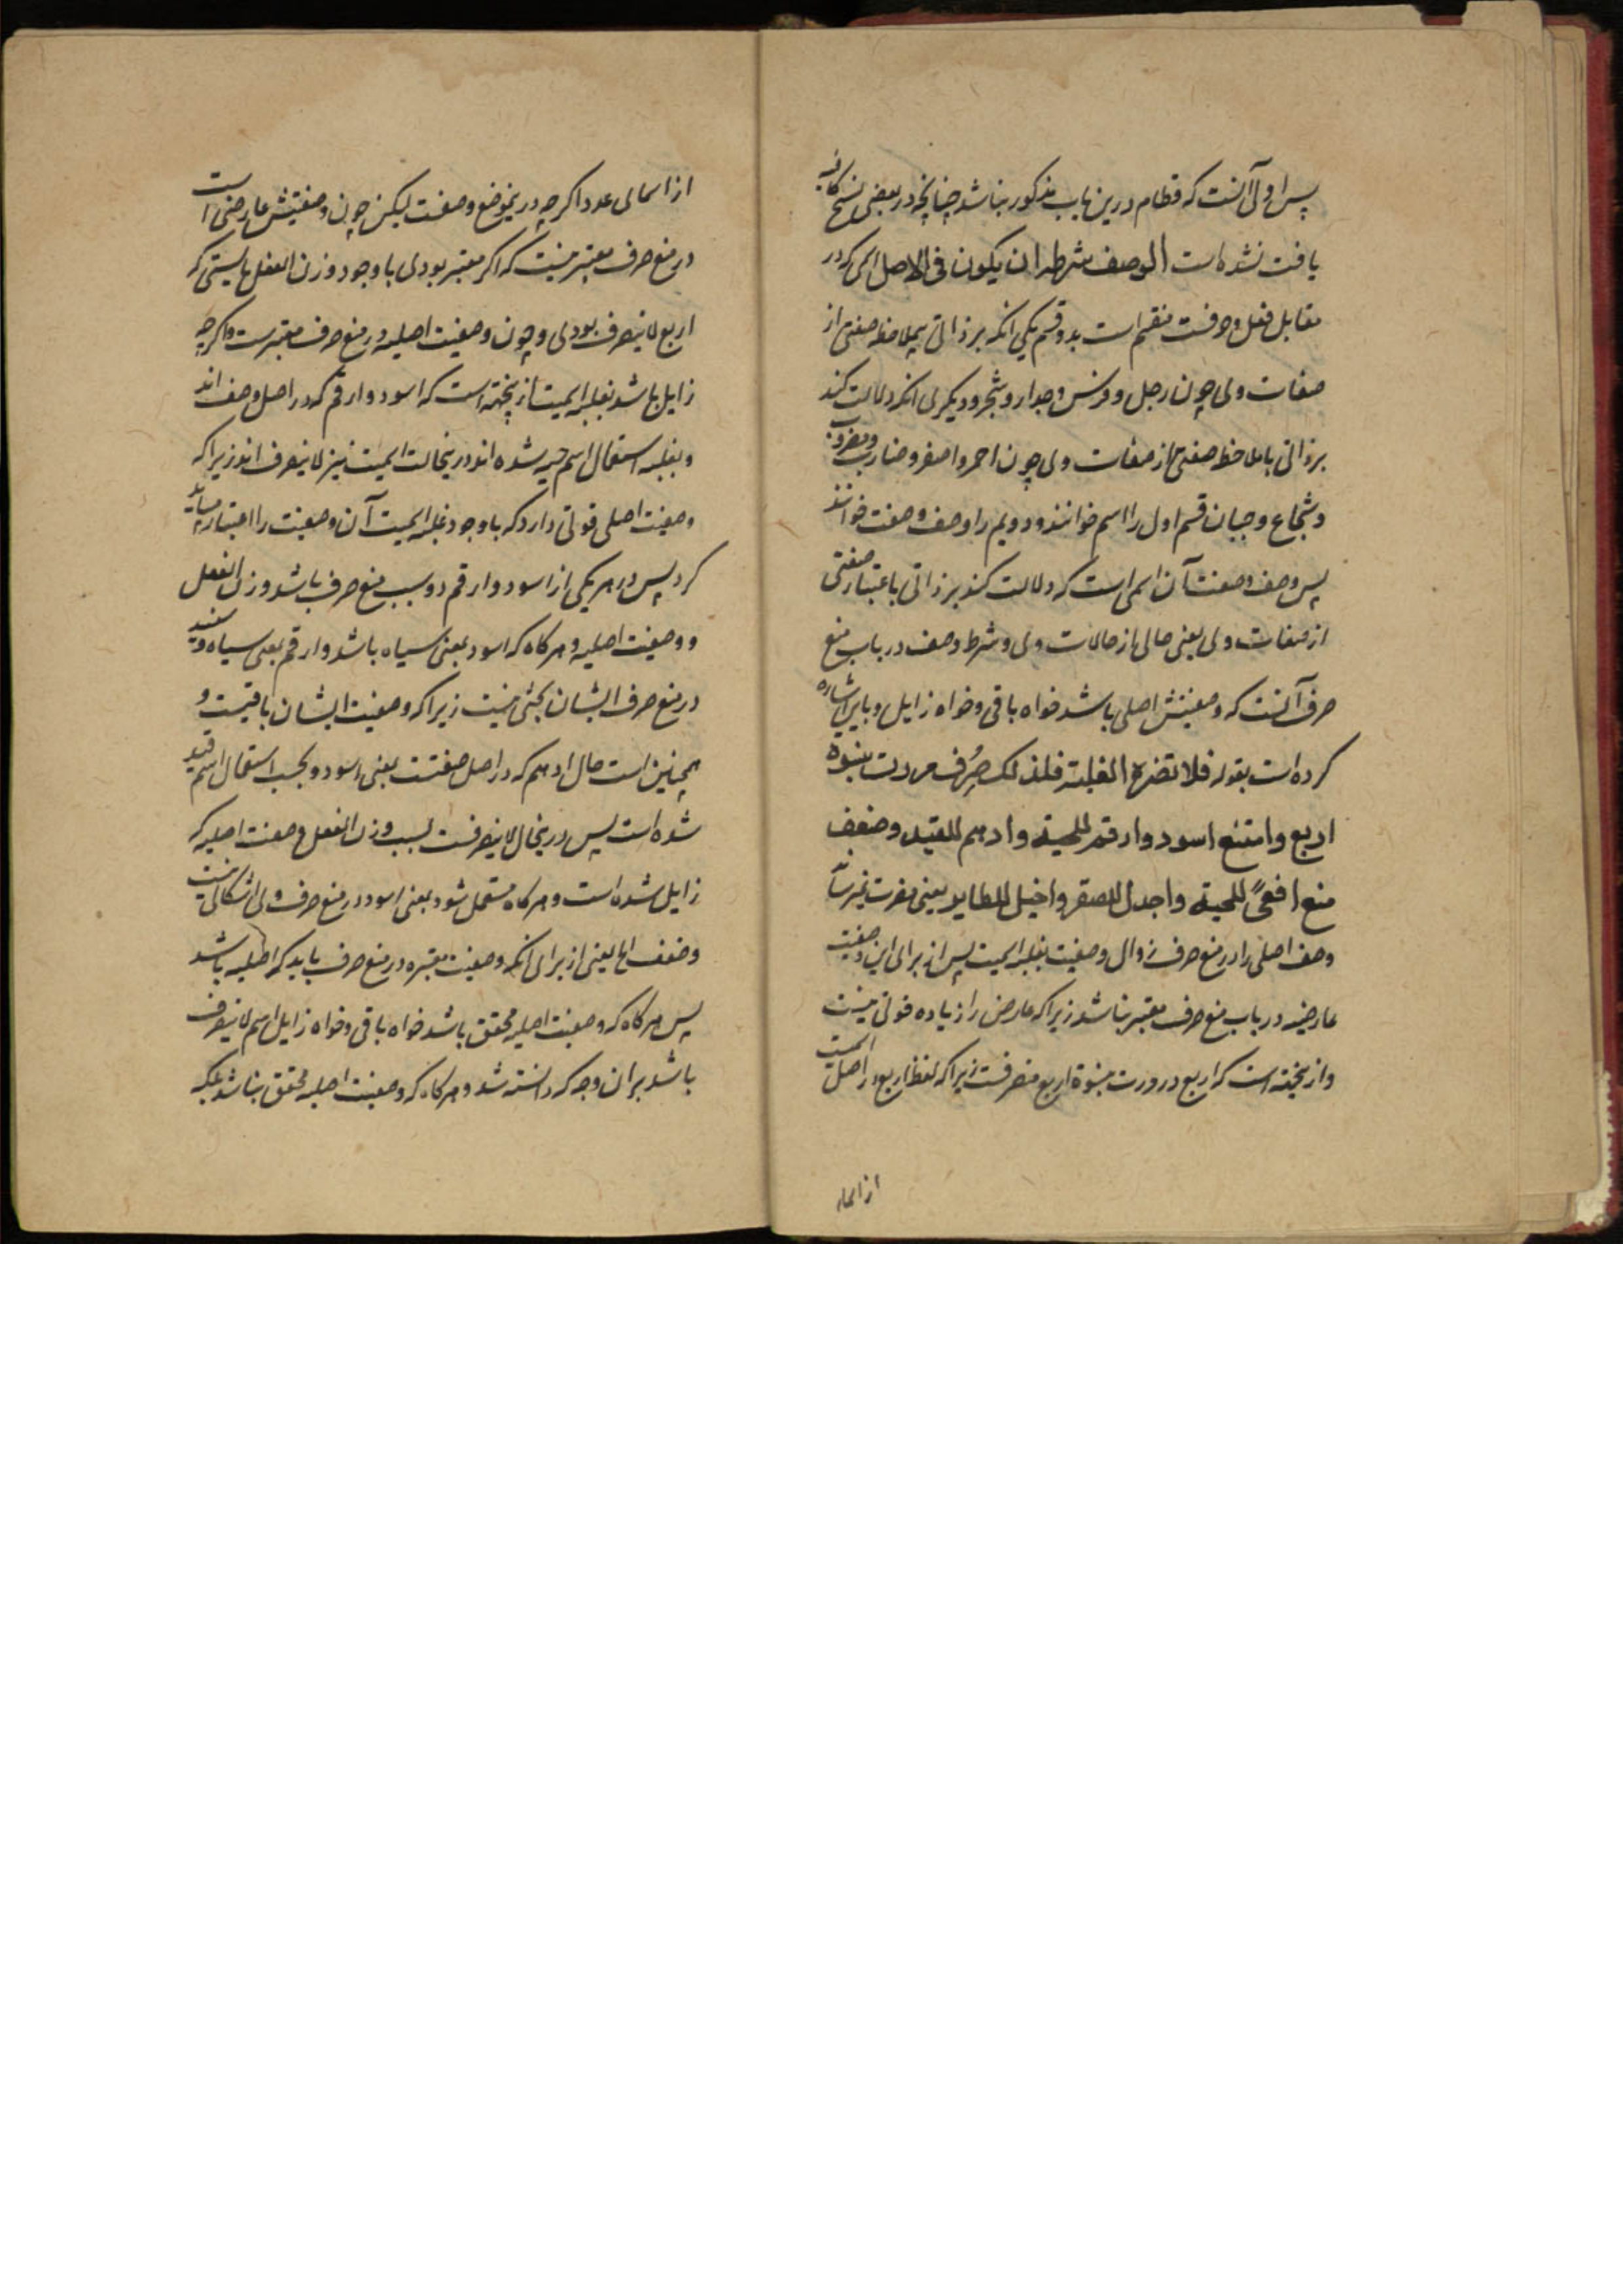 پس اولی آنست که قطام درین باب مذکور نباشد چنانچه در بعضی نسخ کافیه
یافت نشده است الوصف شرطه ان یکون فی الاصل اسمی که در
مقابل فعل و حرفست منقسم است بدو قسم یکی انکه بر ذاتی بیملاحظه صفتی از
صفات وی چون رجل و فرس و جدار و شجر و دیگری انکه دلالت کند
بر ذاتی با ملاحظه صفتی از صفات وی چون احمر و اصفر و ضارب و مضروب
و شجاع و جبان قسم اول را اسم خوانند و دویم را وصف و صفت خوانند
پس وصف و صفت آن اسمی است که دلالت کند بر ذاتی باعتبار صفتی
از صفات وی یعنی حالی از حالات وی و شرط وصف در باب منع
صرف آنست که وصفیتش اصلی باشد خواه باقی و خواه زایل و باین اشاره
کرده است بقوله فلا تضره الغلبة فلذلک صُرِف مررت بنسوة
اربع وامتنع اسود وارقم للحیة وادهم للقید وضعف
منع افعًی للحیة واجدل للصقر واخیل للطایر یعنی مضرت نمیرساند
وصف اصلی را در منع صرف زوال وصفیت بغلبه اسمیت پس از برای این وصفیت
عارضیه در باب منع صرف معتبر نباشد زیراکه عارض را زیاده قوتی نیست
و از نیجته است که اربع در مررت بنسوة اربع منصرفست زیراکه لفظ اربع در اصل اسمیت
از اسماء
از اسمای عدد اکرچه در ینموضع وصفست لیکن چون وصفیتش عارضی است
در منع صرف معتبر نیست که اکر معتبر بودی با وجود وزن الفعل بایستی که
اربع لاینصرف بودی و چون وصفیت اصلیه در منع صرف معتبر ست و اکرچه
زایل باشد بغلبه اسمیت از ینجهته است که اسود و ارقم که در اصل وصف اند
و بغلبه استعمال اسم حیه شده اند در ینحالت اسمیت نیز لاینصرف اند زیراکه
وصفیت اصلی قوتی دارد که با وجود غلبه اسمیت آن وصفیت را اعتبار میباید
کرد پس در هر یکی از اسود و ارقم دو سبب منع صرف باشد وزن الفعل
و وصفیت اصلیه و هرکاه که اسود بمعنی سیاه باشد و ارقم بمعنی سیاه و سفید
در منع صرف ایشان بحثی نیست زیراکه وصفیت ایشان باقیست و
همچنین است حال ادهم که در اصل صفتست بمعنی اسود و بحسب استعمال اسم قید
شده است پس در ینحال لاینصرفست بسبب وزن الفعل و صفت اصلیه که
زایل شده است و هرکاه مستعمل شود بمعنی اسود در منع صرف وی اشکالی نیست
و ضعف الخ یعنی از برای انکه وصفیت معتبره در منع صرف باید که اصلیه باشد
پس هرکاه که وصفیت اصلیه محقق باشد خواه باقی و خواه زایل اسم لاینصرف
باشد بران وجه که دانسته شد و هرکاه که وصفیت اصلیه محقق نباشد بلکه